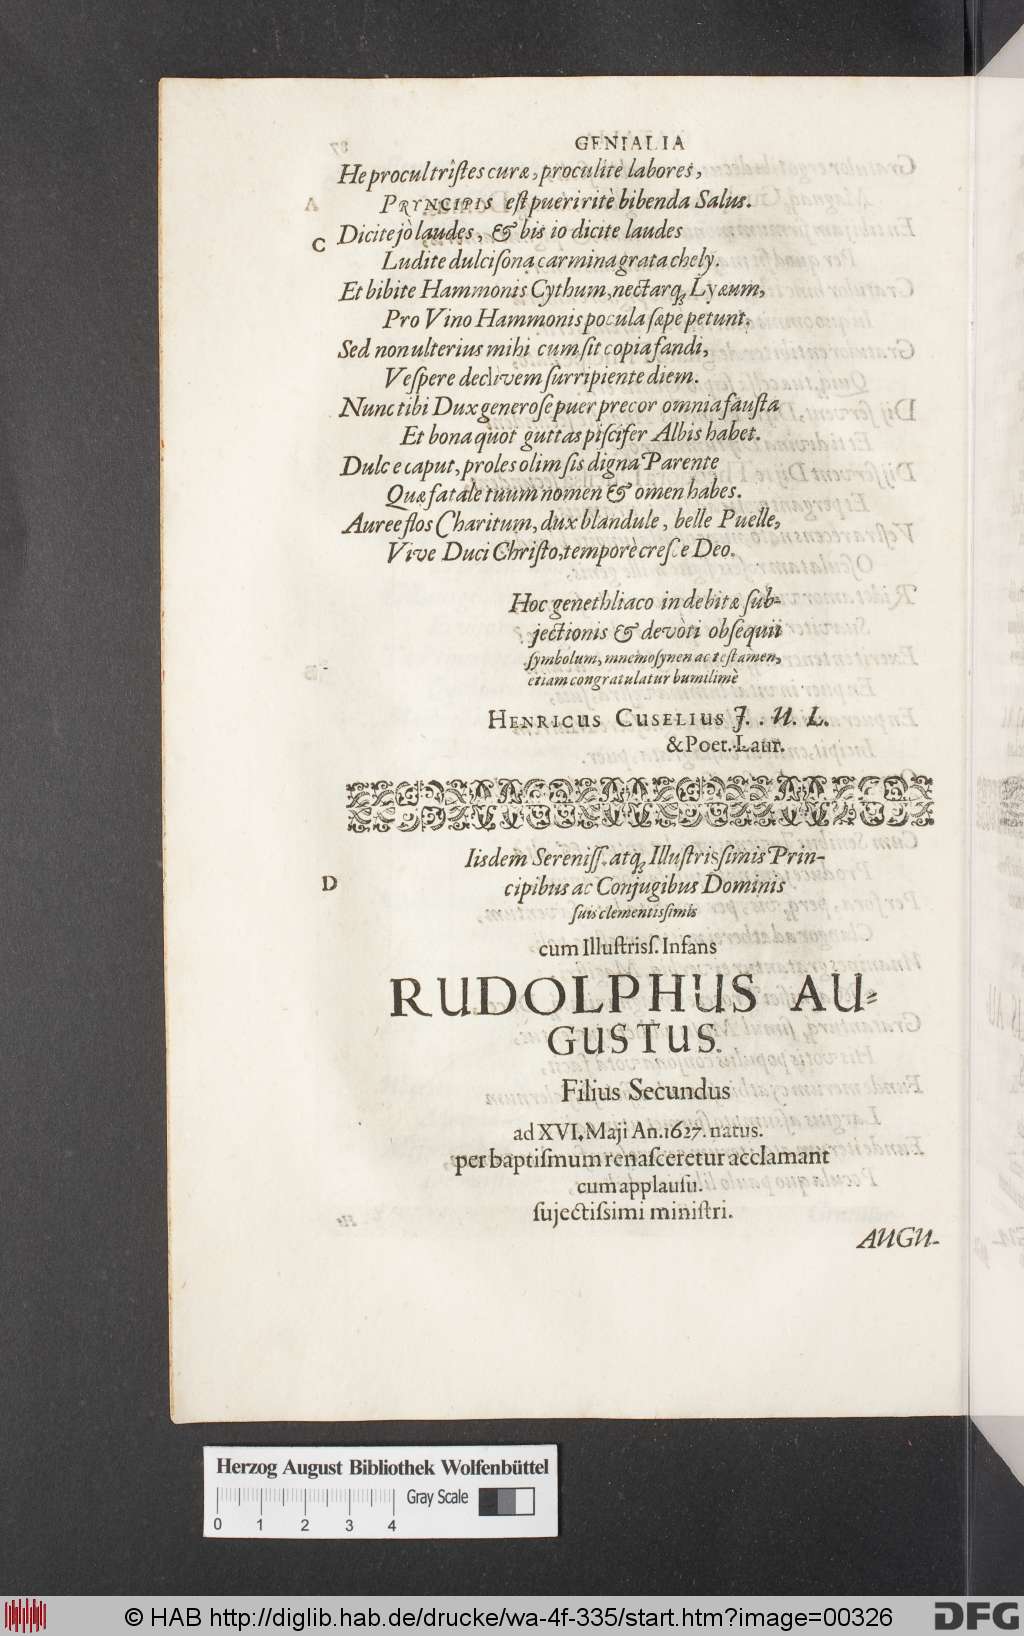 GENIALIA
He procul tristes curæ, procul ite labores,
PRYNCIPIS est pueri ritè bibenda Salus.
C Dicite jò laudes, & bis io dicite laudes
Ludite dulcisona carmina grata chely.
Et bibite Hammonis Cythum, nectarq; Lyæum,
Pro Vino Hammonis pocula sæpe petunt.
Sed non ulterius mihi cum sit copia fandi,
Vespere declivem surripiente diem.
Nunc tibi Dux generose puer precor omnia fausta
Et bona quot guttas piscifer Albis habet.
Dulce caput, proles olim sis digna Parente
Quæ fatale tuum nomen & omen habes.
Auree flos Charitum, dux blandule, belle Puelle,
Vive Duci Christo, tempore cresce Deo.
Hoc genethliaco indebitæ sub-
jectionis & devòti obsequii
symbolum, mnemosynen ac testamen,
etiam congratulatur humilimè
HENRICUS CUSELIUS J. U. L.
& Poet. Laur.
D
Iisdem Sereniss. atq; Illustrissimis Prin-
cipibus ac Conjugibus Dominis
suis clementissimis
cum Illustriss. Infans
RUDOLPHUS AU-
GUSTUS.
Filius Secundus
ad XVI. Maji An. 1627. natus.
per baptismum renasceretur acclamant
cum applausu.
sujectissimi ministri.
AUGU-
Herzog August Bibliothek Wolfenbüttel
Gray Scale
0 1 2 3 4
© HAB http://diglib.hab.de/drucke/wa-4f-335/start.htm?image=00326
DFG